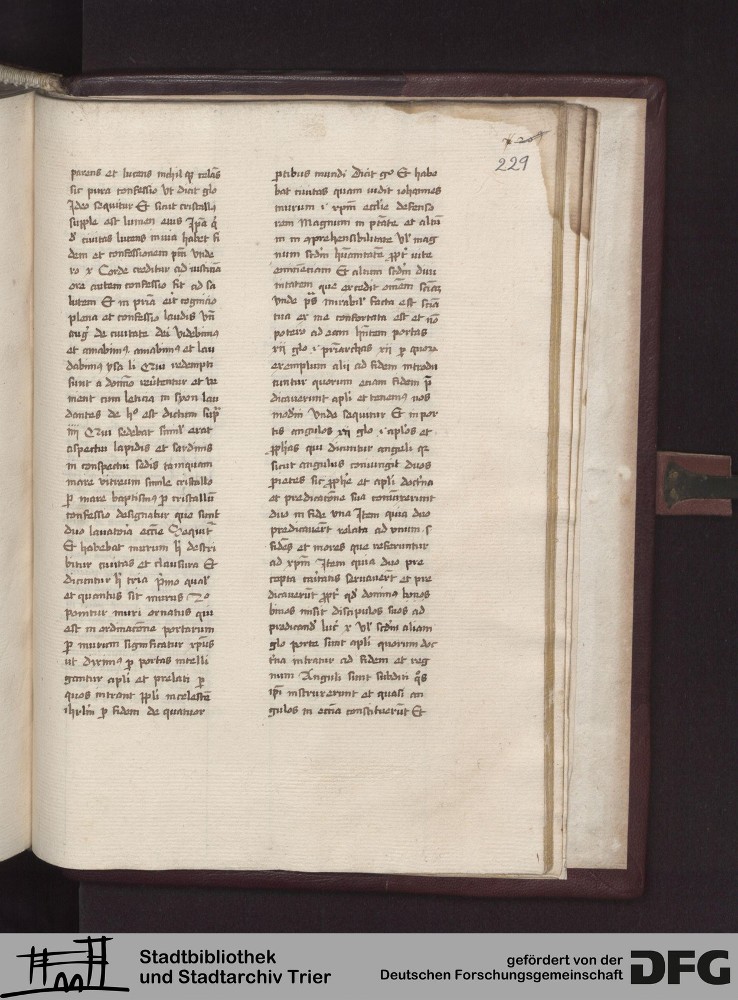 229
parens et lucens nichil
sic pura confessio vt dicit glo
Ideo sequitur Et sicut cristallū
supple est lumen eius
ciuitas lucens in via habet fi
dem et confessionem vnde
ro x Corde creditur ad iusticiā
ore autem confessio fit ad sa
lutem Et in pria erit cognicio
plena et confessio laudis
aug de ciuitate dei videbimꝰ
et amabimꝰ amabimꝰ et lau
dabimꝰ ysa li Qui redempti
sunt a domino reūtentur et ve
nient cum leticia in syon lau
dantes de hͦ est dictum supͣ
iiii Qui sedebat simil erat
aspectui lapidis et sardinis
in conspectu sedis tamquam
mare vitreum simile cristallo
ꝑ mare baptismꝰ ꝑ cristallū
confessio designatur que sunt
duo lauatoria eccie Sequit
Et habebat murum hͥ descri
bitur ciuitas et clausura Et
dicuntur hͥ tria pͥmo qual
et quantus sit murus 2o
ponitur muri ornatus qui
est in ordinacione portarum
ꝑ murum significatur xpūs
ut diximꝰ ꝑ portas intelli
guntur apli et prelati ꝑ
quos intrant ppli in celestē
ihrlm ꝑ fidem de quatuor
ꝑtibus mundi Dicit go Et habe
bat ciuitas quam vidit iohannes
murum i xpm ecclie defenso
rem Magnum in ptāte et altū
in incomprehensibilitate vl mag
num scdm hūanitatē ppt vite
eminenciam Et altum scdm diui
nitatem que excedit omēm
vnde ps mirabil facta est sciā
tua ex me confortata est et nō
potero ad eam hntem portas
xii glo i priarchas xii ꝑ quorū
exemplum alii ad fidem introdu
cuntur quorum etiam fidem p̄
dicauerunt apli et tenemꝰ nos
moderni vnde sequitur Et in por
tis angulos xii glo i aplos et
prophas qui dicuntur anguli qr
sicut angulus coniungit duos
ꝑietes sic prophe et apli doctna
et predicacōne sua coniūxerunt
duo in fide vna Item quia duo
predicauert relata ad vnum s
fides et mores que referuntur
ad xpm Item quia duo pre
cepta caritatis seruauert et pre
dicauerūt ppt qd dominus binos
binos misit discipulos suos ad
predicand luc x vl scdm aliam
glo porte sunt apli quorum doc
tna intratur ad fidem et reg
num Anguli sunt subditi qͦs
ipi instruxerunt et quasi an
gulos in eccia constituerūt Et
Stadtbibliothek
und Stadtarchiv Trier
gefördert von der
Deutschen Forschungsgemeinschaft
DFG